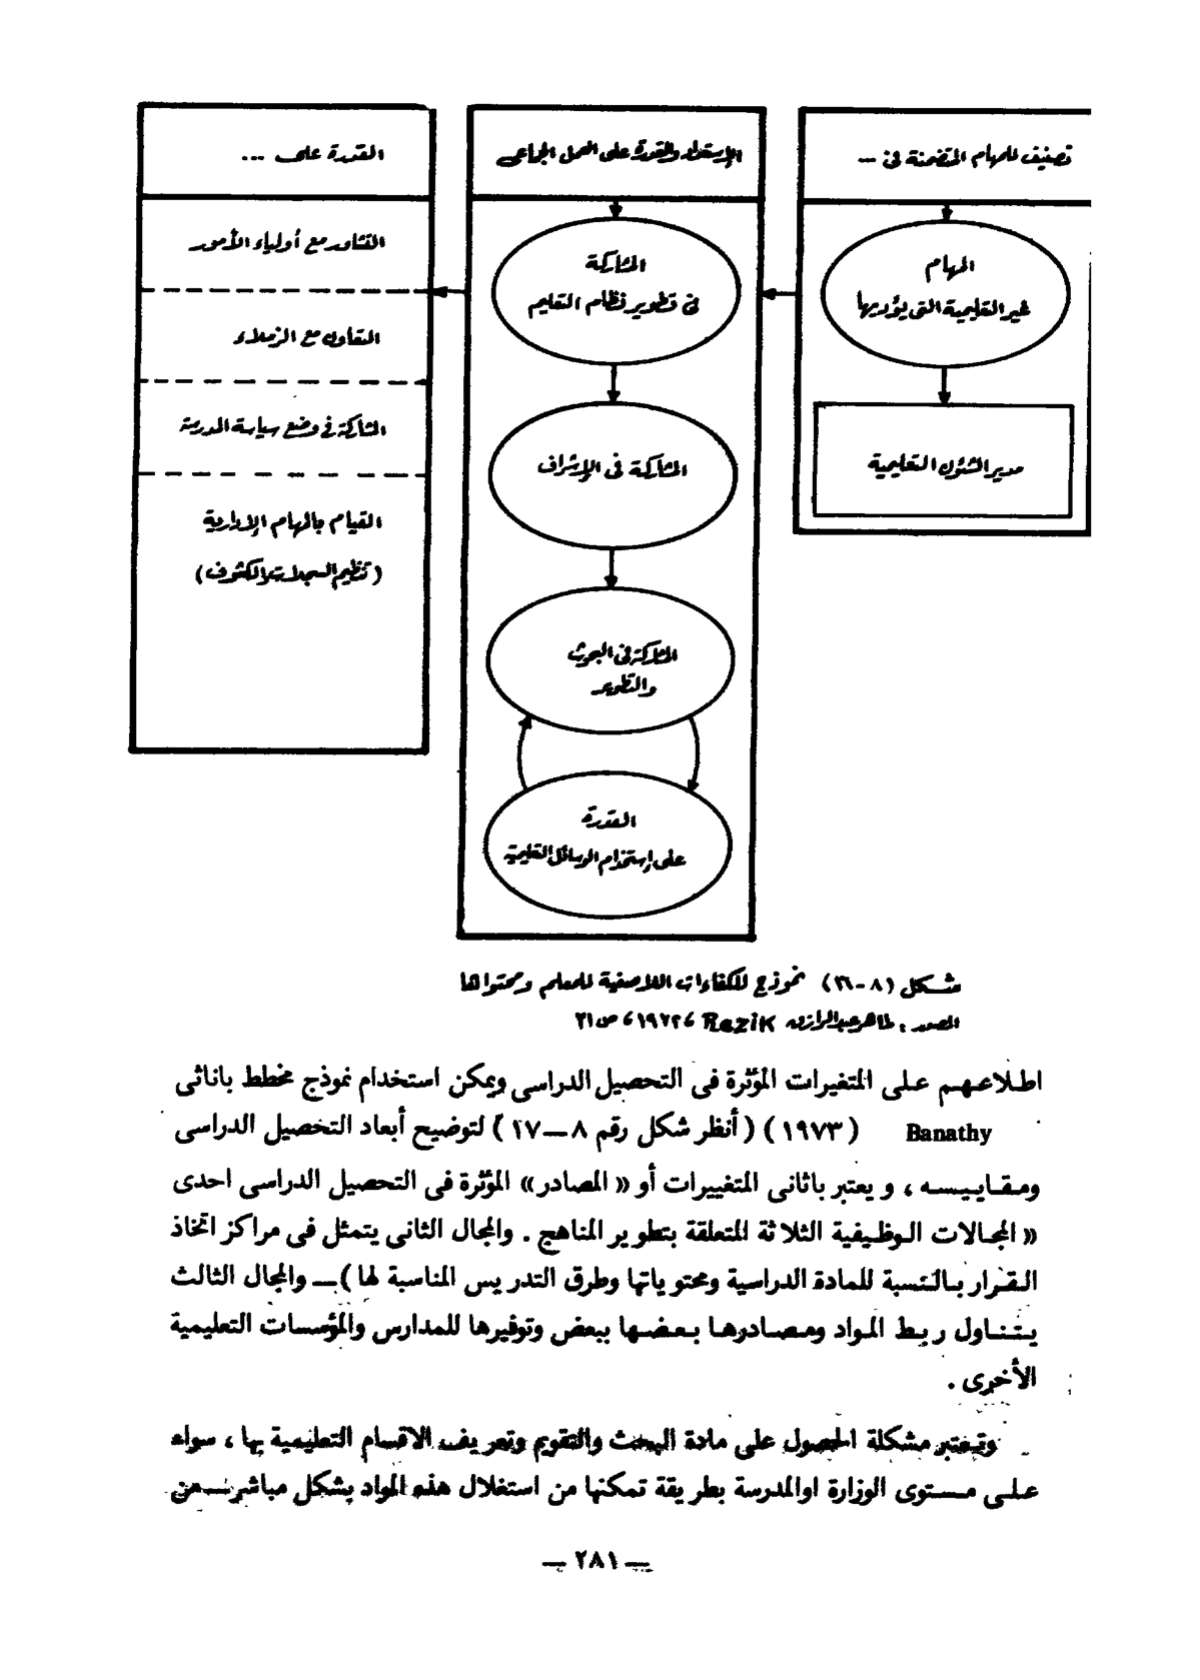 تصنيف للمهام المتضمنة فى ...
المهام
غير التعليمية التى يؤديها
مدير الشؤون التعليمية
الإستعداد والقدرة على العمل الجماعى
المشاركة
فى تطوير نظام التعليم
المشاركة فى الإشراف
المشاركة فى البحوث
والتطوير
القدرة
على إستخدام الوسائل التعليمية
القدرة على ...
التشاور مع أولياء الأمور
التعاون مع الزملاء
المشاركة فى وضع سياسة المدرسة
القيام بالمهام الإدارية
(تنظيم السجلات والكشوف)
شكل (٨-٢٦) نموذج للكفاءات اللاصفية للمعلم ومحتواها
المصدر : طاهر عبدالرازق Rezik ، ١٩٧٢ ، ص ٢١
اطلاعهم على المتغيرات المؤثرة فى التحصيل الدراسى ويمكن استخدام نموذج مخطط باناثى
Banathy (١٩٧٣) (أنظر شكل رقم ٨ــ٢٧) لتوضيح أبعاد التحصيل الدراسى
ومقاييسه ، و يعتبر باثانى المتغييرات أو « المصادر» المؤثرة فى التحصيل الدراسى احدى
« المجالات الوظيفية الثلاثة المتعلقة بتطوير المناهج . والمجال الثانى يتمثل فى مراكز اتخاذ
القرار بالنسبة للمادة الدراسية ومحتوياتها وطرق التدريس المناسبة لها )ــ والمجال الثالث
يتناول ربط المواد ومصادرها بعضها ببعض وتوفيرها للمدارس والمؤسسات التعليمية
الأخرى .
وتعتبر مشكلة الحصول على مادة البحث والتقويم وتعريف الاقسام التعليمية بها ، سواء
على مستوى الوزارة اوالمدرسة بطريقة تمكنها من استغلال هذه المواد بشكل مباشر ــ من
ــ ٢٨١ ــ